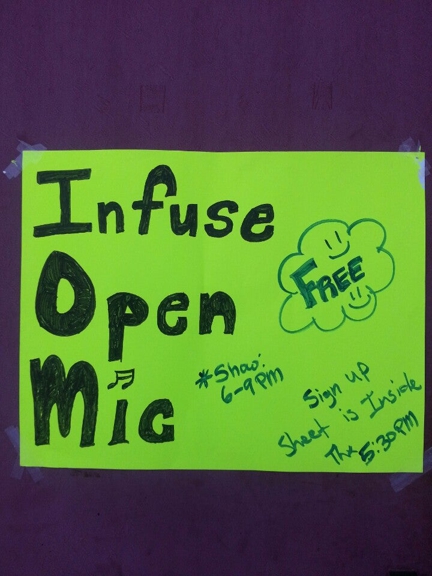 Infuse
Open
Mic
FREE
*Show:
6-9 PM
Sign up
Sheet is Inside
Thx 5:30PM